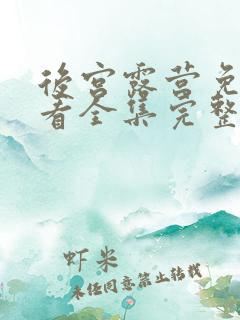 后宫露营免
看全集完整
虾米
未经同意禁止转载